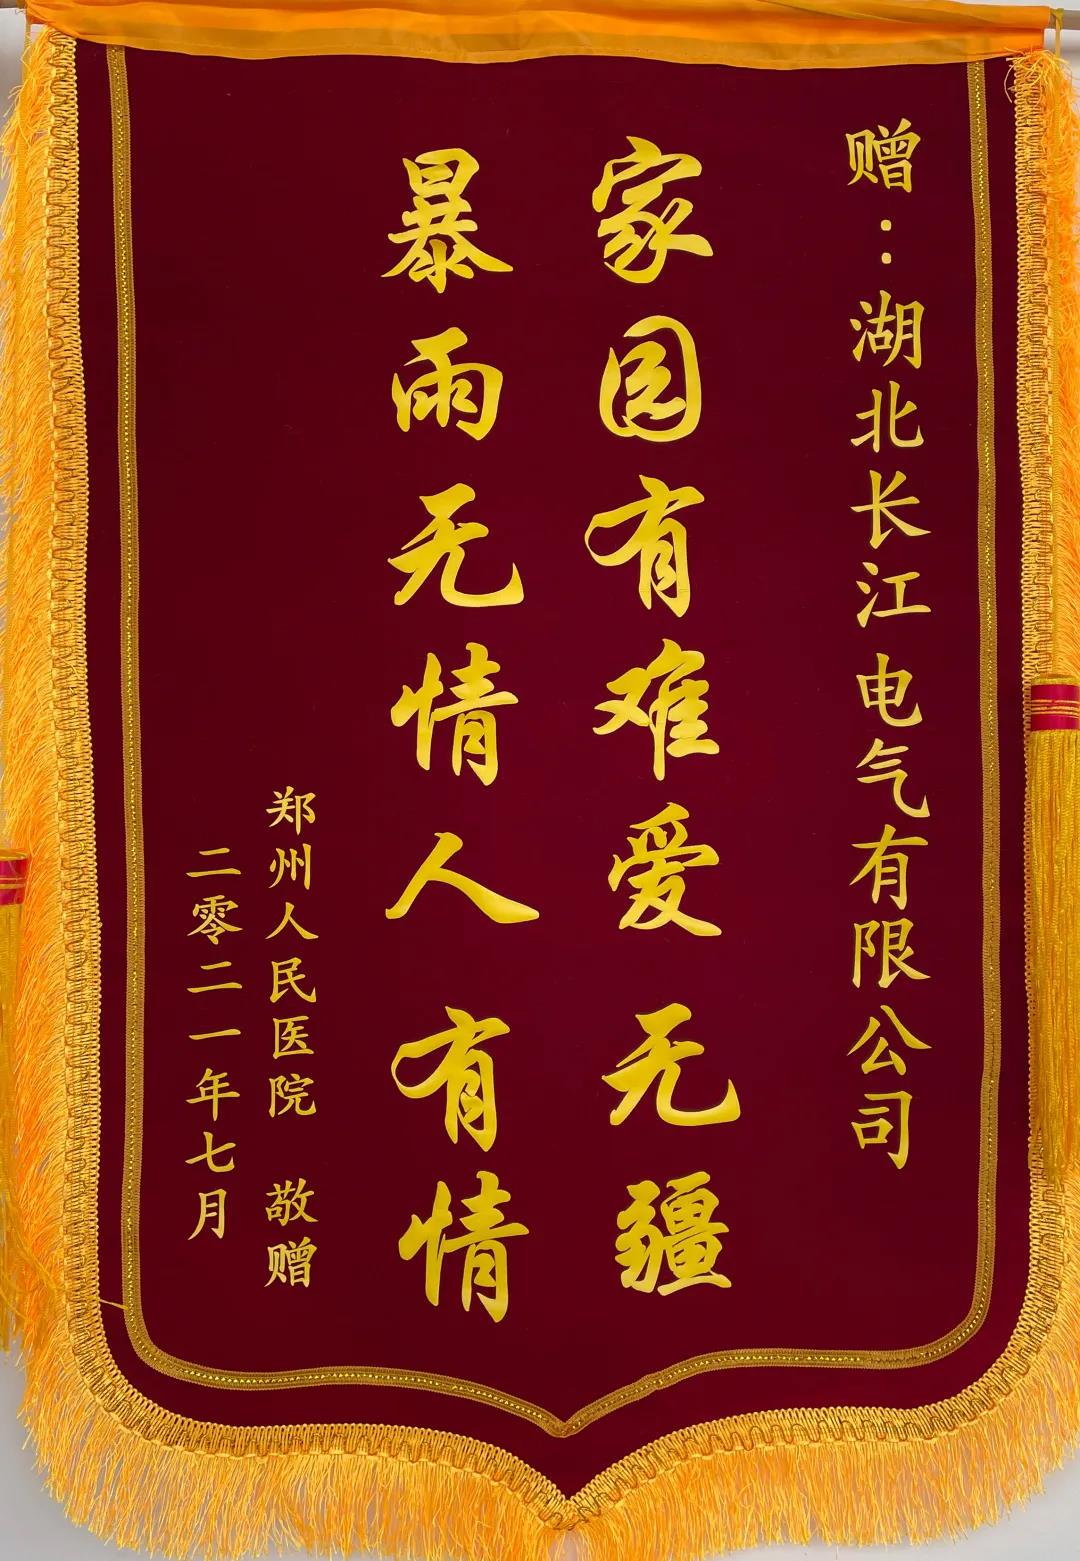 赠：湖北长江电气有限公司
家园有难爱无疆
暴雨无情人有情
郑州人民医院 敬赠
二零二一年七月